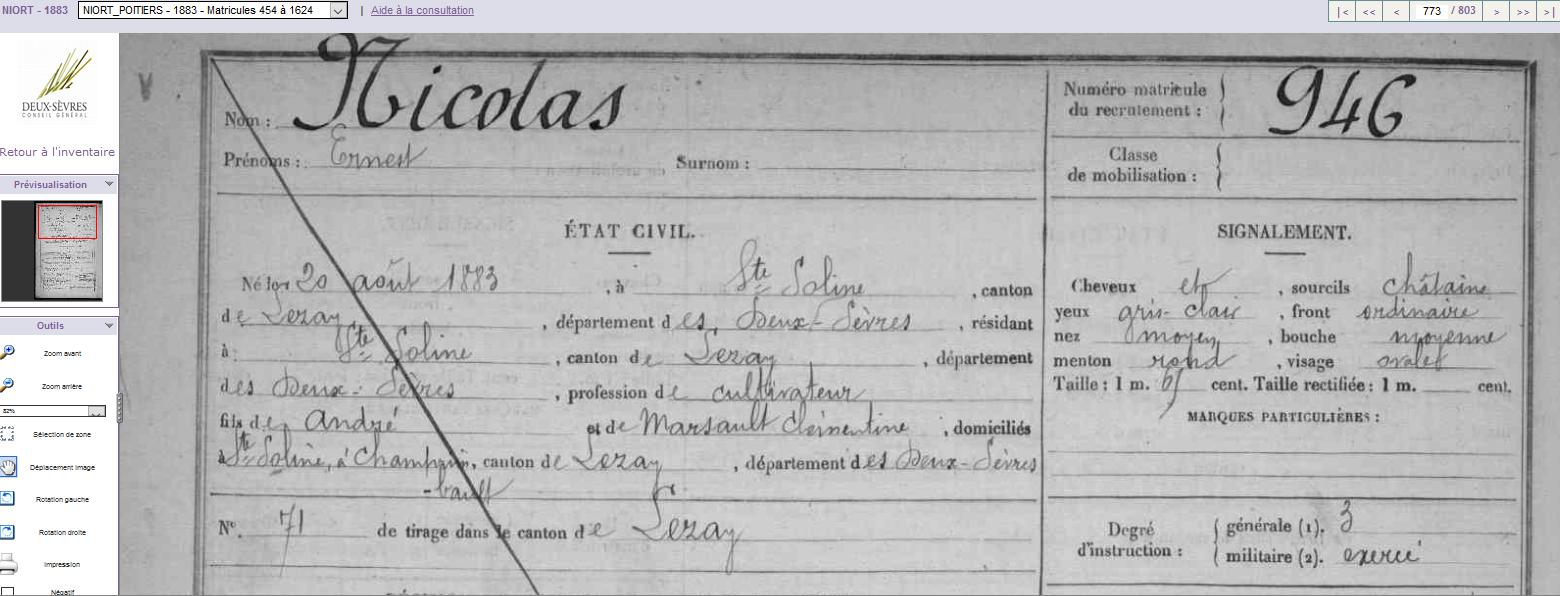 NIORT - 1883
NIORT_POITIERS - 1883 - Matricules 454 à 1624
| Aide à la consultation
|< << < 773 / 803 > >> >|
DEUX-SÈVRES
CONSEIL GÉNÉRAL
Retour à l'inventaire
Prévisualisation
Outils
Zoom avant
Zoom arrière
82%
Sélection de zone
Déplacement image
Rotation gauche
Rotation droite
Impression
Négatif
Nom : Nicolas
Prénoms : Ernest Surnom :
Numéro matricule
du recrutement : 946
Classe
de mobilisation :
ÉTAT CIVIL.
Né le 20 août 1883, à Ste Soline, canton
de Lezay, département des Deux-Sèvres, résidant
à Ste Soline, canton de Lezay, département
des Deux-Sèvres, profession de cultivateur
fils de André et de Marsault Clémentine, domiciliés
à Ste Soline, à Champ
-bault, canton de Lezay, département des Deux-Sèvres
N°. 71 de tirage dans le canton de Lezay
SIGNALEMENT.
Cheveux et, sourcils châtains
yeux gris-clair, front ordinaire
nez moyen, bouche moyenne
menton rond, visage ovale
Taille : 1 m. cent. Taille rectifiée : 1 m. cent.
MARQUES PARTICULIÈRES :
Degré
d'instruction :
générale (1). 3
militaire (2). exercé